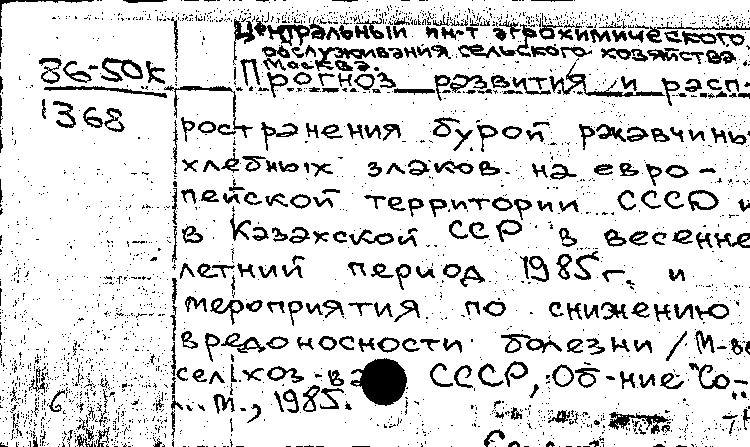 Центральный ин-т агрохимического
обслуживания сельского хозяйства.
Москва.
86-50к Прогноз развития и расп-
1368
ространения бурой ржавчины
хлебных злаков на евро-
пейской территории СССР и
в Казахской ССР в весенне
летний период 1985г. и
мероприятия по снижению
вредоносности болезни / М-во
сел. хоз-ва СССР, Об-ние "Со-
М., 1985.
6